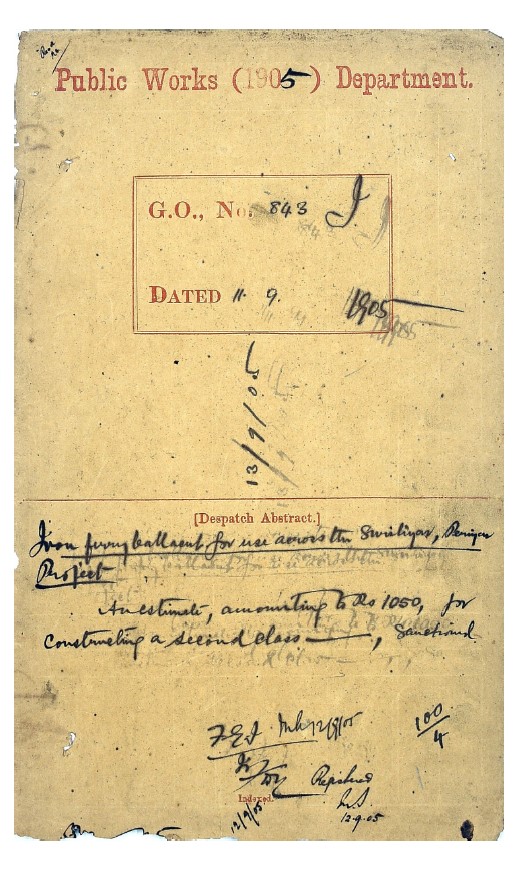 Public Works (1905) Department.
G.O., No. 843 I
DATED 11. 9. 1905
13/9/05
[Despatch Abstract.]
Iron ferry ballaent for use across the Periyar
Project
An estimate, amounting to Rs 1050, for
constructing a second class ———, Sanctioned.
12/9/05
100/4
Registered
Indexed.
12/9/05
12.9.05